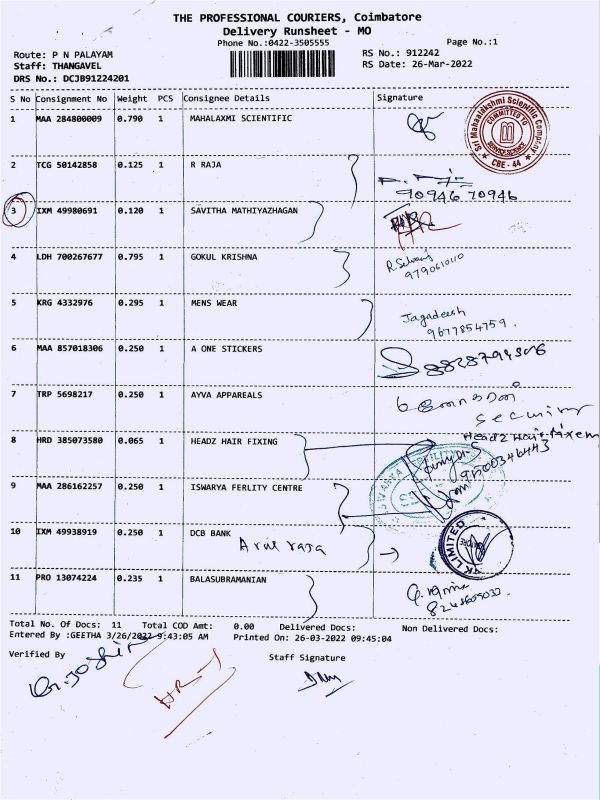 THE PROFESSIONAL COURIERS, Coimbatore
Delivery Runsheet - MO
Phone No.:0422-3505555
Page No.:1
Route: P N PALAYAM
Staff: THANGAVEL
DRS No.: DCJB91224201
RS No.: 912242
RS Date: 26-Mar-2022
S No Consignment No Weight PCS Consignee Details Signature
1 MAA 284800009 0.790 1 MAHALAXMI SCIENTIFIC
Sri Mahaalakshmi Scientific Company
COMMITTED TO
SERVICE SCIENCE
CBE - 44
2 TCG 50142858 0.125 1 R RAJA
90946 70946
3 IXM 49980691 0.120 1 SAVITHA MATHIYAZHAGAN
4 LDH 700267677 0.795 1 GOKUL KRISHNA
R. Selvaraj
9790610110
5 KRG 4332976 0.295 1 MENS WEAR
Jagadeesh
9677854759.
6 MAA 857018306 0.250 1 A ONE STICKERS
7 TRP 5698217 0.250 1 AYVA APPAREALS
Security
8 HRD 385073580 0.065 1 HEADZ HAIR FIXING
Headz Hair Fixem
9 MAA 286162257 0.250 1 ISWARYA FERLITY CENTRE
10 IXM 49938919 0.250 1 DCB BANK
Arul raja
K LIMITED
11 PRO 13074224 0.235 1 BALASUBRAMANIAN
Total No. Of Docs: 11 Total COD Amt: 0.00 Delivered Docs: Non Delivered Docs:
Entered By :GEETHA 3/26/2022 9:43:05 AM Printed On: 26-03-2022 09:45:04
Verified By Staff Signature